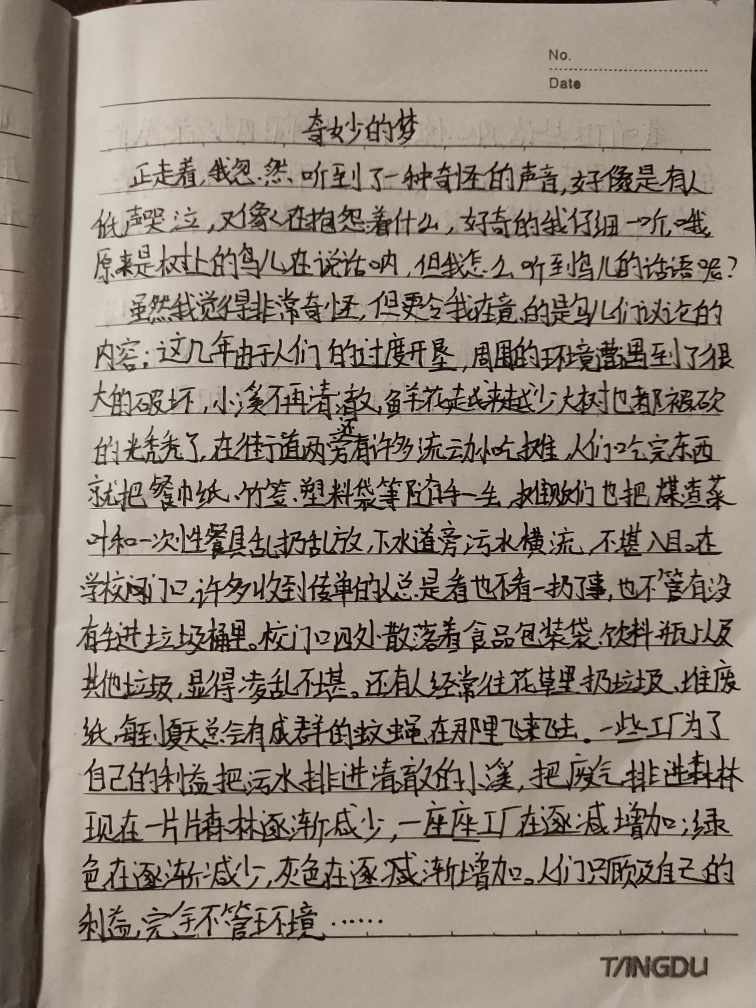 No.
Date
奇妙的梦
正走着,我忽然听到了一种奇怪的声音,好像是有人
低声哭泣,又像人在抱怨着什么,好奇的我仔细一听,哦,
原来是树上的鸟儿在说话呐,但我怎么听到鸟儿的话语呢?
虽然我觉得非常奇怪,但更令我在意的是鸟儿们议论的
内容;这几年由于人们的过度开垦,周围的环境遭遇到了很
大的破坏,小溪不再清澈,鲜花越来越少,大树也都被砍
的光秃秃了,在街道两旁还有许多流动小吃摊,人们吃完东西
就把餐巾纸、竹签、塑料袋等随手一生,摊贩们也把煤渣菜
叶和一次性餐具乱扔乱放,下水道旁污水横流,不堪入目。在
学校门口,许多收到传单的总是看也不看一扔了事,也不管有没
有丢进垃圾桶里。校门口四处散落着食品包装袋、饮料瓶以及
其他垃圾,显得凌乱不堪。还有人经常往花草里扔垃圾、堆废
纸,每到夏天总会有成群的蚊蝇在那里飞来飞去。一些工厂为了
自己的利益把污水排进清澈的小溪,把废气排进森林
现在一片片森林逐渐减少,一座座工厂在逐减增加;绿
色在逐渐减少,灰色在逐减渐增加。人们只顾及自己的
利益,完全不管环境……
TANGDU